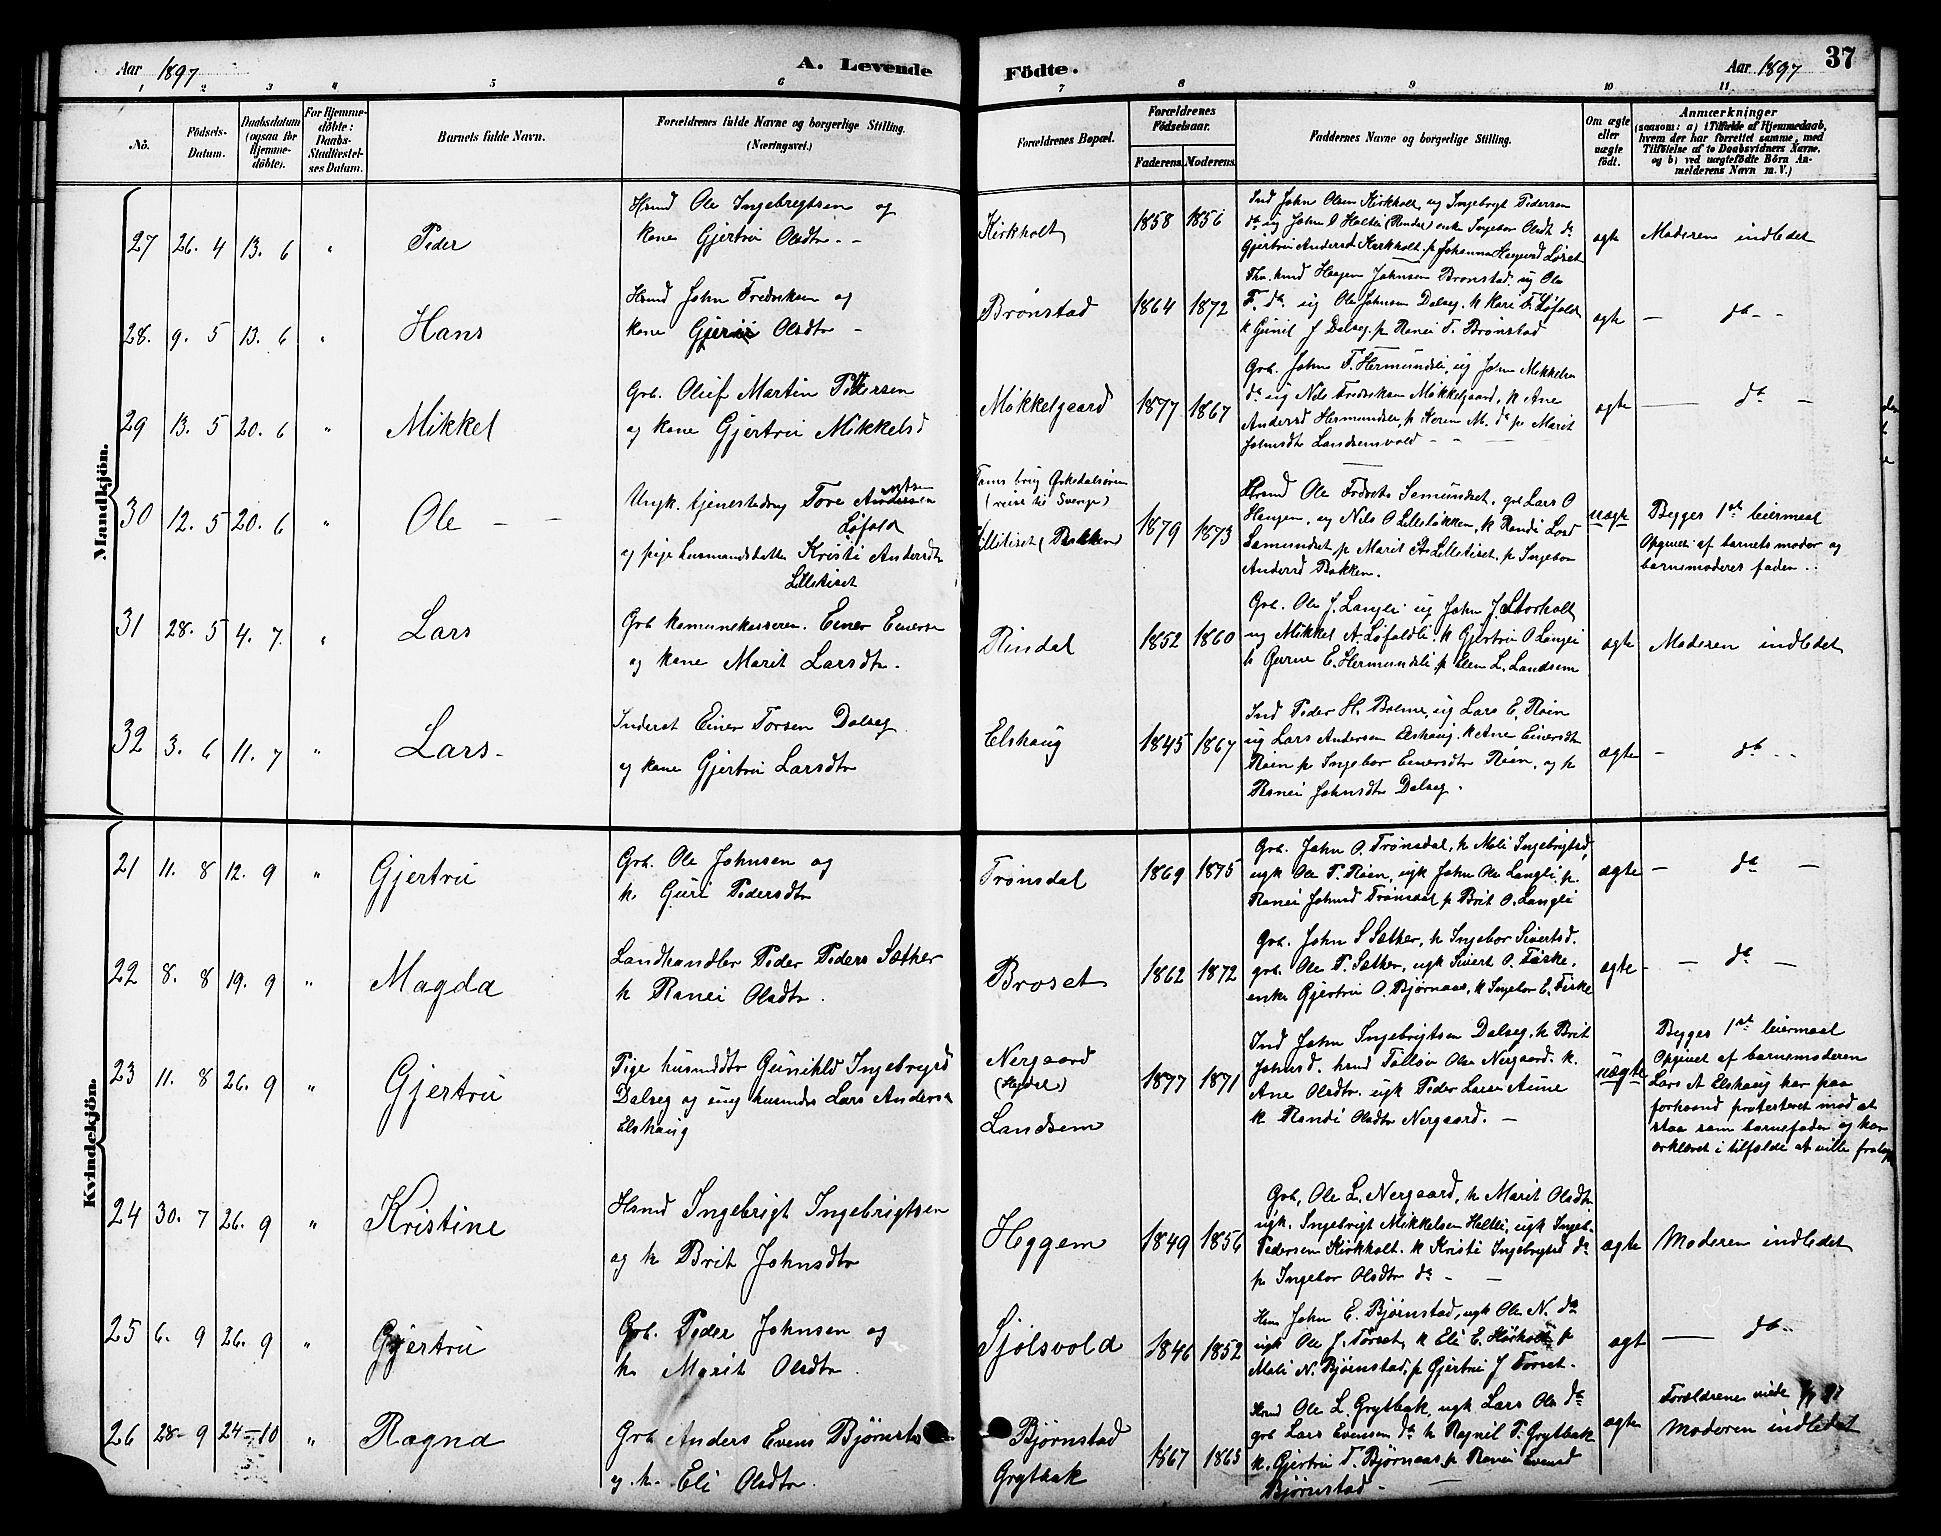 Aar 1897
A. Levende
Födte.
Aar 1897
37
1 2 3 4 5 6 7 8 9 10 11
No.
Födsels-
Datum.
Daabsdatum
(ogsaa for
Hjemme-
döbte).
For Hjemme-
döbte:
Daabs-
Stadfæstel-
ses Datum.
Barnets fulde Navn.
Forældrenes fulde Navne og borgerlige Stilling.
(Næringsvei.)
Forældrenes Bopæl.
Forældrenes
Födselsaar.
Faderens.
Moderens.
Faddernes Navne og borgerlige Stilling.
Om ægte
eller
uægte
födt.
Anmærkninger
(saasom: a) i Tilfælde af Hjemmedaab,
hvem der har forrettet samme, med
Tilföielse af to Daabsvidners Navne.
og b) ved uægtefödte Börn An-
melderens Navn m. V.)
Mandkjön.
27 26. 4 13. 6 " Peder
Hsmd Ole Ingebregtsen og
kone Gjertru Olsdtr - -
Kirkholt
1858 1856
Ind John Olsen Kirkholt, ug Ingebrigt Pedersen
do ug John O Haltli (Rindal) enke Ingebor Olsdt do
Gjertru Andersd Kirkholt. p Johanna Løset
ægte
Moderen indledet
28. 9. 5 13. 6 " Hans
Hsmd John Fredriksen og
kone Olsdtr -
Brønstad
1864 1872
hsmd Haagen Johnsen Brønstad, ug Ole
F. do. ug Ole Johnsen Dalseg. k Kari F. Løfald
k Gunil J Dalseg, p Ranei T. Brønstad
ægte
— do - -
29 13. 5 20. 6 " Mikkel
Grb. Oluf Martin Pettersen
og kone Gjertru Mikkelsd
Mikkelgaard
1877 1867
Grb. John F. Hermundsli, ug John Mikkelsen
do ug Nils Fredriksen Mikkelgaard, k Ane
Andersd Hermundsli, p Karen M. do p Marit
Johnsdtr Landsemvold - -
ægte
— do -
30 12. 5 20. 6 " Ole - -
Ungk. tjenestedreng Tore
Løfald
og pige husmandsdatter Kristi Andersdtr
Lillekiset
brug Orkedalsøren
(reist til Sverige)
(Bakken)
1879 1873
Hsmd Ole Semundset, Lars O
Haugen, og Nils O Lilleløkken, k Randi Losd
Semundset p Marit A Lillekiset, p Ingebor
Andersd Bakken.
uægte
Begges 1ste leiermaal
Opgivet af barnets moder og
barnemoderes fader. .
31 28. 5 4. 7. " Lars
Grb Komunekasserer. Einer Einersen
og kone Marit Larsdtr.
Rindal
1852 1860
Grb. Ole J. Langli ug John J. Storholt
ug Mikkel A. Løfaldli. k Gjertru O Langli
k Guru E. Hermundsli, p Elen L. Landsem
ægte
Moderen indledet
32 3. 6 11. 7 " Lars-
Inderst Einer Torsen Dalseg
og kone Gjertru Larsdtr
Elshaug
1845 1867
Ind Peder H. Bolme, ug Lars E. Røen
ug Lars Andersen Elshaug, k Ane Einersdtr
Røen p Ingebor Einersdtr Røen, og p
Ranei Johnsdtr Dalseg.
ægte
— do - -
Kvindekjön.
21 11. 8 12. 9 " Gjertru
Grb. Ole Johnsen og
k. Guri Pedersdtr
Trønsdal
1869 1875
Grb. John O. Trønsdal, k Mali Ingebrigtsd,
ugk Ole P. Røen, ugk John Ols Langli, p.
Ranei Johnsd Trønsdal p Brit O. Langli
ægte
— do —
22 8. 8 19. 9 " Magda
Landhandler Peder Peders Sæther
k Ranei Olsdtr.
Broset
1862 1872
Grb. John S Sæther, k Ingebor Sivertsd.
grb. Ole P. Sæther, ugk Sivert O. Fiske.
enke Gjertru O. Bjørnaas, k Ingebor E. Fiske
ægte
— do —
23 11. 8 26. 9 " Gjertru
Pige husmdtr Gunihld Ingebrigsd
Dalseg og ung husmands Lars Andersen
Elshaug
Nergaard
Landsem
1877 1871
Ind John Ingebrigtsen Dalseg, k Brit
Johnsd. hsmd Tolløv Olsen Nergaard. k.
Ane Olsdtr. ugk Peder Larsen Aune
k Randi Olsdtr Nergaard. —
uægte
Begges 1ste leiermaal
Opgivet af barnemoderen
Lars A Elshaug har paa
forhaand protesteret mod at
staa som barnefader og har
erklæret i tilfælde at ville
24 30. 7 26. 9 " Kristine
Hsmd Ingebrigt Ingebrigtsen
og k Brit Johnsdtr
Heggem
1849 1856
Grb, Ole L. Nergaard, k Marit Olsdtr
ugk. Ingebrigt Mikkelsen Haltli, ugk Ingeb.
Pedersen Kirkholt. k Kristi Ingebrigtsd do
p Ingebor Olsdtr do -
ægte
Moderen indledet
25 6. 9 26. 9 " Gjertru
Grb. Peder Johnsen og
k. Marit Olsdtr.
Sjølsvold
1846 1852
John E. Bjørnstad, ugk Ole N. do
ugk Ole J. Torset, k Eli E. p
Mali N. Bjørnstad, p Gjertru J Torset.
ægt
— do -
26 28- 9 24-10 " Ragna
Grb Anders Evens Bjørnstad
og k. Eli Olsdtr.
Bjørnstad
Grytbak
1867 1863
Hsmd Ole L Grytbak, ugk Lars Ols do
grb Lars Evensen do k Ragnil T. Grytbak
k. Gjertru T. Bjørnaas, p Ranei Evensd
Bjørnstad. -
ægte
Forældrene viede 97
Moderen indledet